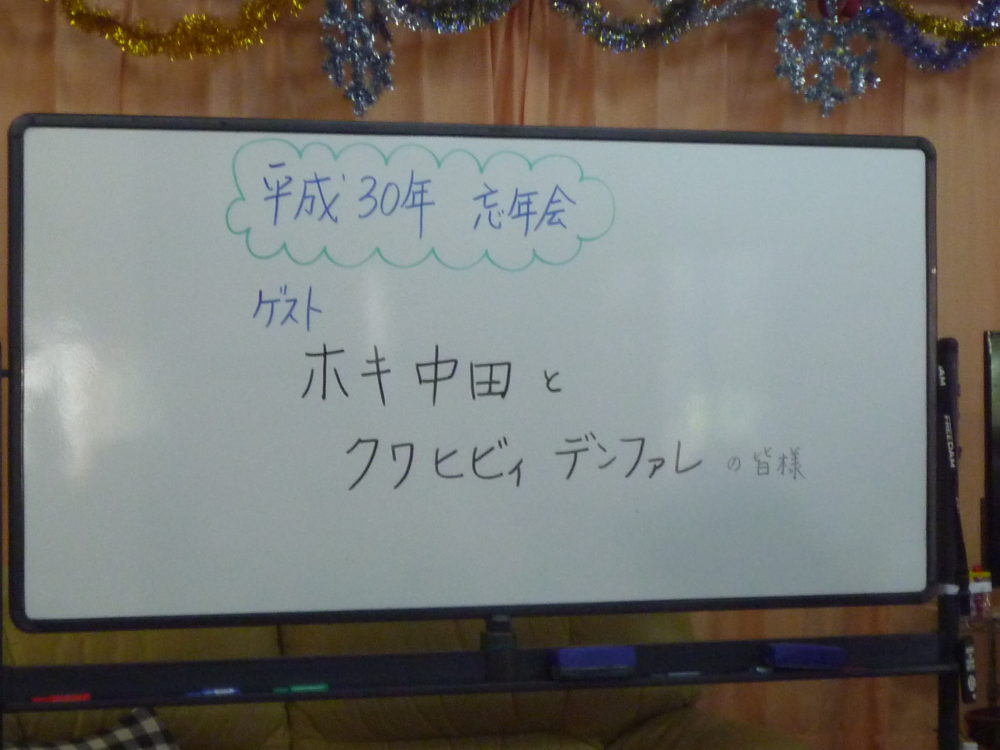 平成30年 忘年会
ゲスト
ホキ中田と
クワヒビィ デンファレの皆様
AM
FREEDAM